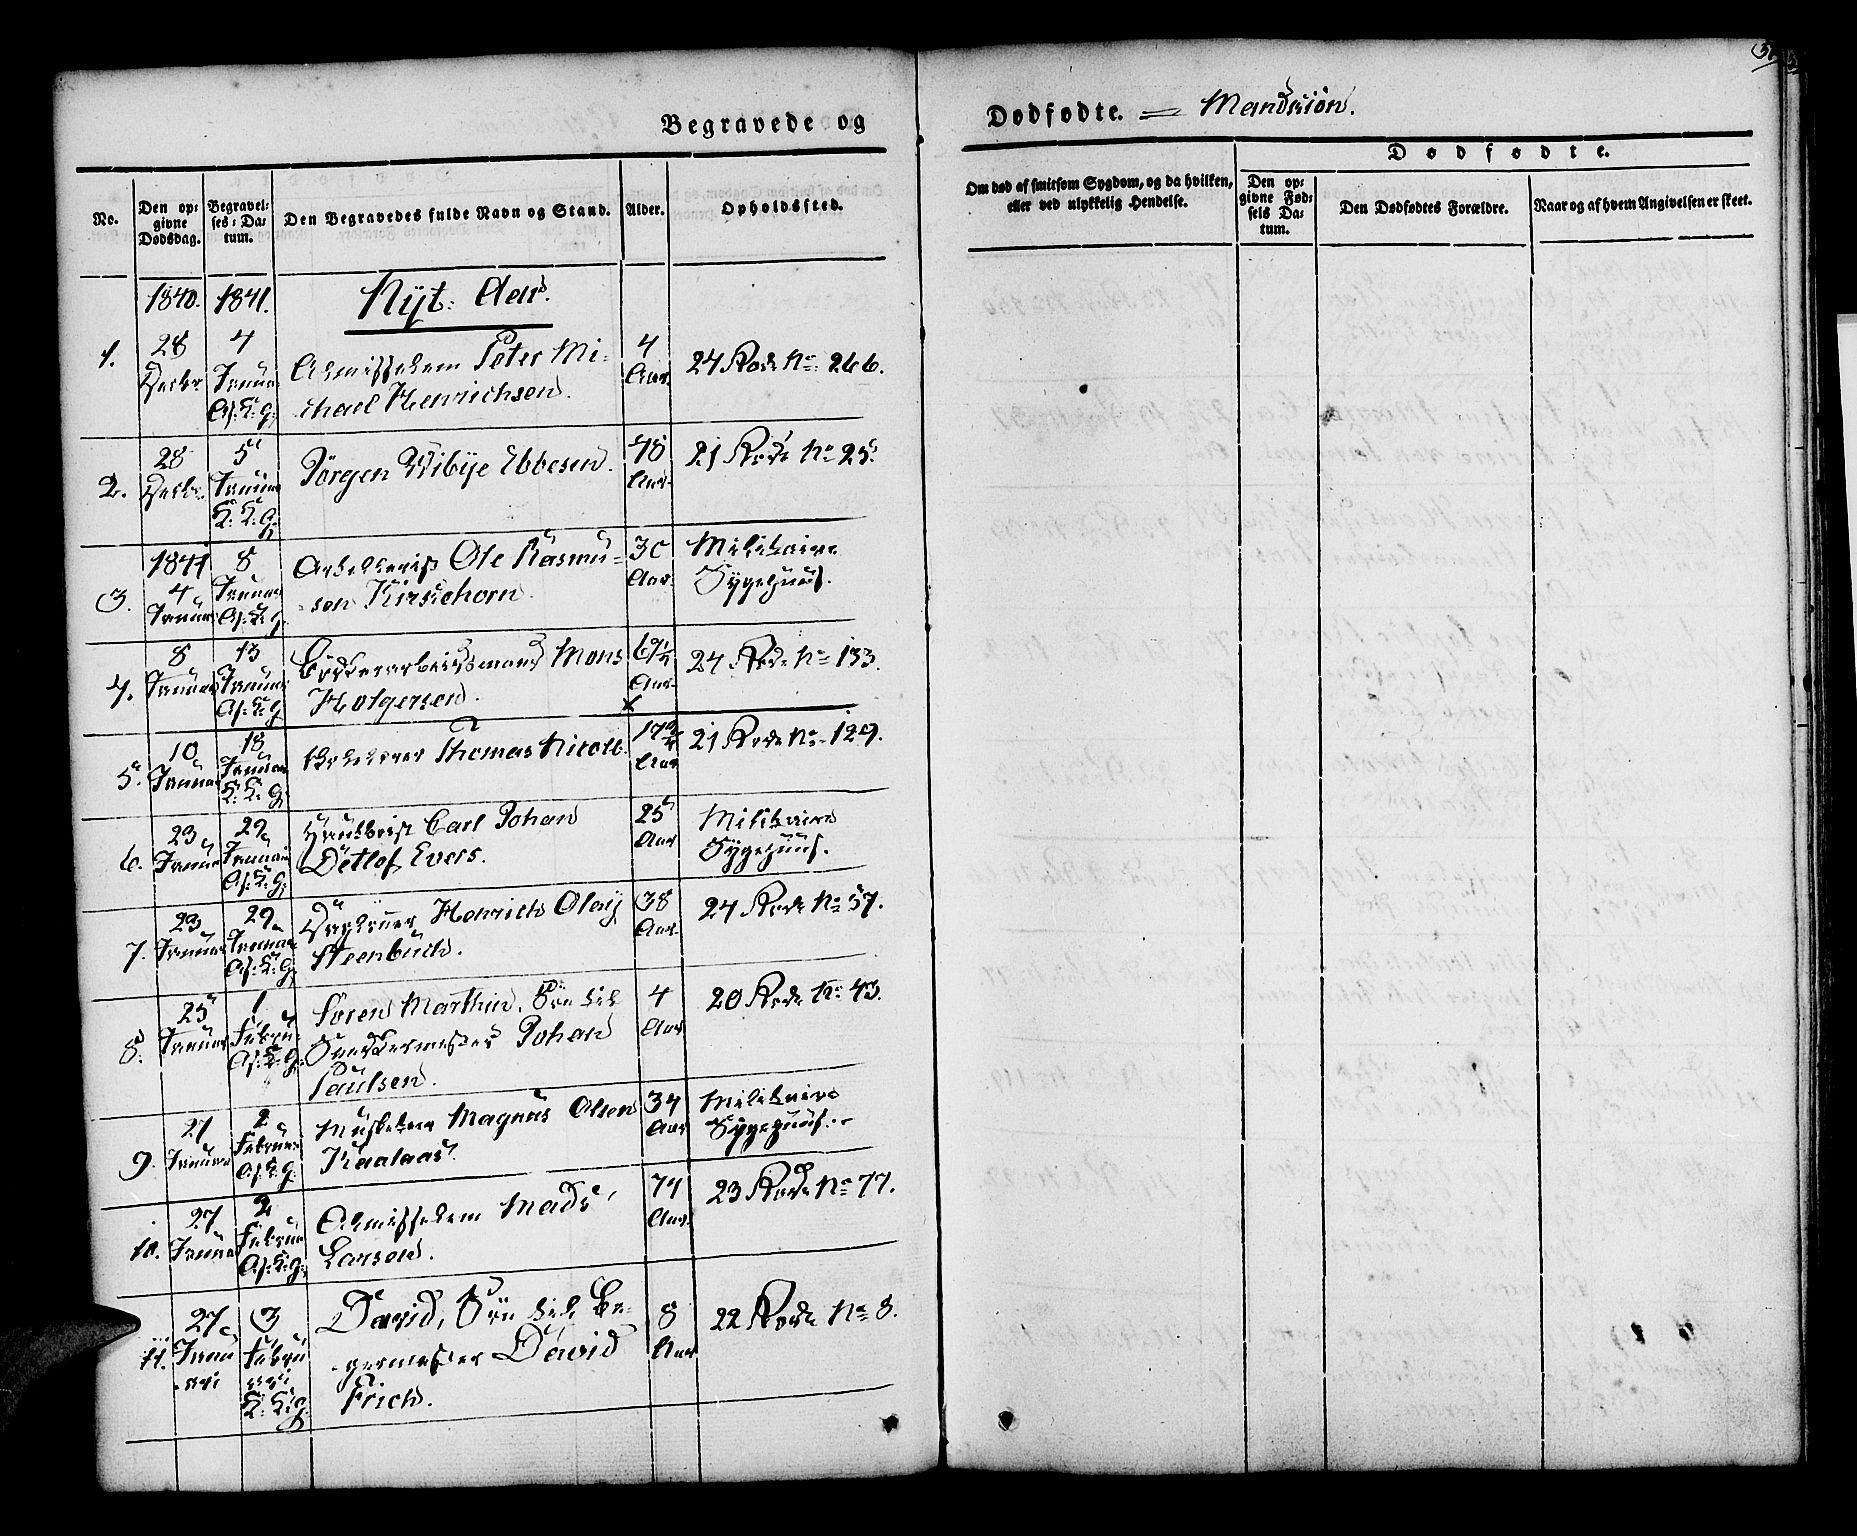 Begravede og
Dødfødte. = Mandkiön.
No.
Den op-
givne
Dødsdag.
Begravel-
ses-Da-
tum.
Den Begravedes fulde Navn og Stand.
Alder.
Opholdssted.
Om død af smitsom Sygdom, og da hvilken,
eller ved ulykkelig Hendelse.
Dødfødte.
Den op-
givne Fød-
sels Da-
tum.
Den Dødfødtes Forældre.
Naar og af hvem Angivelsen er skeet.
1840. 1841. Nÿt: Aar.
1. 28 Decbr. 4 Januar
Almisselem Peter Mi-
chael Henrichsen.
4 Aar. 24 Rode No. 266.
2. 28 Decbr. 5 Januar K: K: G:
Jörgen Wibÿe Ebbesen.
48 Aar. 21 Rode No. 25.
3. 1841 4 Januar 8 Januar
Ole Rasmu-
sen Kirschorn.
30 Aar. Militaire
Sygehuus.
4. 8 Januar 13 Januar
Mons
Holgersen.
Aar. 24 Rode No. 133.
5. 10 Januar 18 Januar K: K: G:
Thomas Nicoll.
Aar 21 Rode No. 129.
6. 23 Januar 29 Januar
Hautboist Carl Johan
Detlof Evers.
25 Aar Militaire
Sygehuus.
7. 23 Januar 29 Januar
Henrich Olaÿ
Steenbuch.
38 Aar. 24 Rode No. 57.
8. 25 Januar 1 Februar
Sören Marthin, Sön til
Snedkermester Johan
Paulsen.
4 Aar 20 Rode No. 43.
9. 27 Januar 2 Februar
Musketeer Magnus Olsen
Kaalaas.
34 Aar Militaire
Sygehuus.
10. 27 Januar 2 Februar
Almisselem Mads
Larsen.
74 Aar. 23 Rode No. 77.
11. 27 Januari 3 Februari K: K: G:
David, Sön til Ba-
germester David
Frich.
8 Aar 22 Rode No. 8.